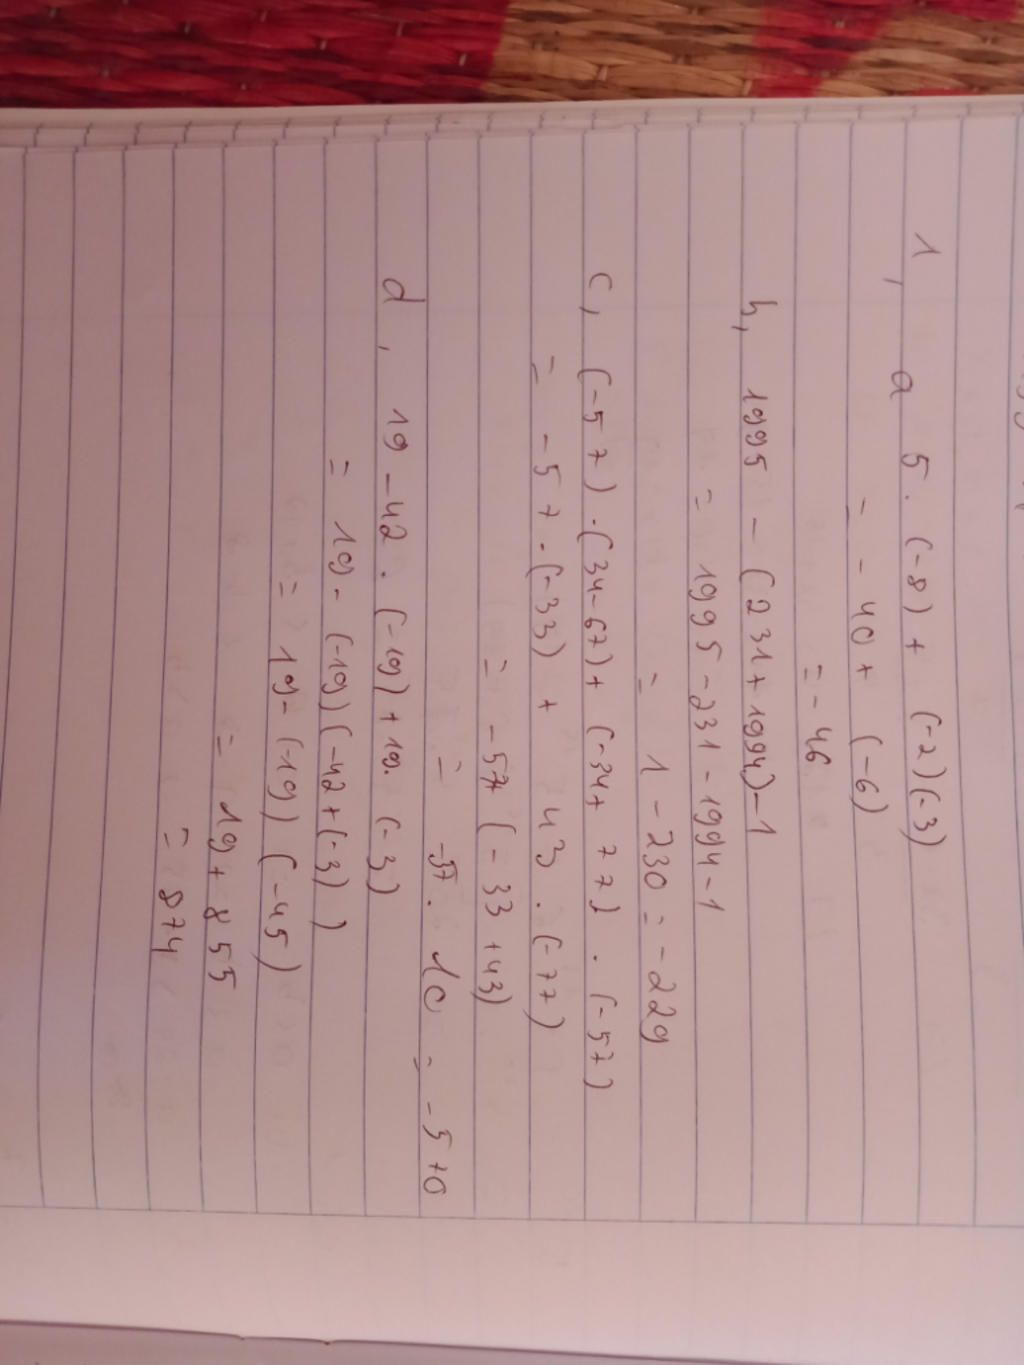 1, a 5. (-8) + (-2)(-3)
= - 40 + (-6)
= - 46
b, 1995 - (231 + 1994) - 1
= 1995 - 231 - 1994 - 1
= 1 - 230 = - 229
c, (-57) . (34-67) + (-34+ 77) . (-57)
= - 57 . (-33) + 43 . (-77)
= - 57 (- 33 + 43)
= -57 . 10 = - 570
d, 19 - 42 . (-19) + 19. (-3)
= 19 - (-19) (-42 + (-3) )
= 19 - (-19) ( -45)
= 19 + 855
= 874